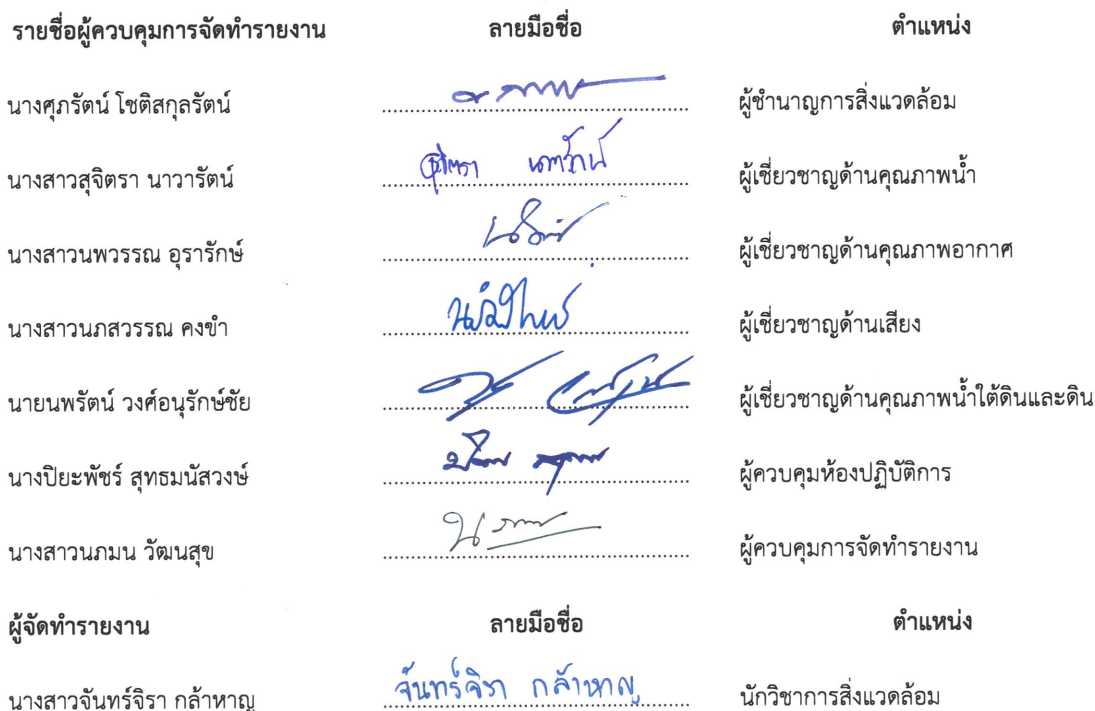 รายชื่อผู้ควบคุมการจัดทำรายงาน ลายมือชื่อ ตำแหน่ง
นางศุภรัตน์ โชติสกุลรัตน์ ผู้ชำนาญการสิ่งแวดล้อม
นางสาวสุจิตรา นาวารัตน์ สุจิตรา นาวารัตน์ ผู้เชี่ยวชาญด้านคุณภาพน้ำ
นางสาวนพวรรณ อุรารักษ์ ผู้เชี่ยวชาญด้านคุณภาพอากาศ
นางสาวนภสวรรณ คงขำ ผู้เชี่ยวชาญด้านเสียง
นายนพรัตน์ วงศ์อนุรักษ์ชัย ผู้เชี่ยวชาญด้านคุณภาพน้ำใต้ดินและดิน
นางปิยะพัชร์ สุทธมนัสวงษ์ ผู้ควบคุมห้องปฏิบัติการ
นางสาวนภมน วัฒนสุข ผู้ควบคุมการจัดทำรายงาน
ผู้จัดทำรายงาน ลายมือชื่อ ตำแหน่ง
นางสาวจันทร์จิรา กล้าหาญ จันทร์จิรา กล้าหาญ นักวิชาการสิ่งแวดล้อม